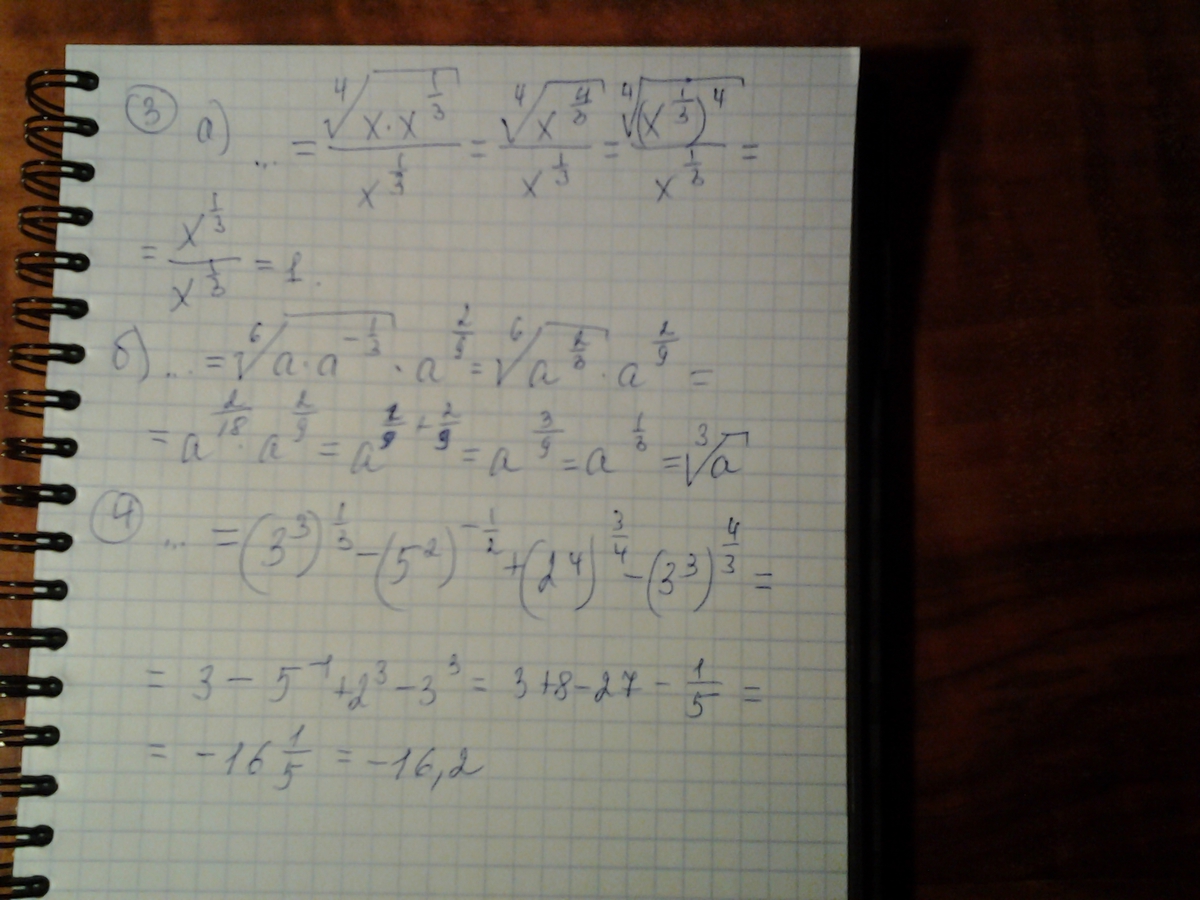 ③ а) ... = ⁴√(x·x^(1/3)) / x^(1/3) = ⁴√(x^(4/3)) / x^(1/3) = ⁴√((x^(1/3))^4) / x^(1/3) =
= x^(1/3) / x^(1/3) = 1.
б) ... = ⁶√(a·a^(-1/3)) · a^(2/9) = ⁶√(a^(2/3)) · a^(2/9) =
= a^(2/18) · a^(2/9) = a^(1/9 + 2/9) = a^(3/9) = a^(1/3) = ³√a
④ ... = (3^3)^(1/3) - (5^2)^(-1/2) + (2^4)^(3/4) - (3^3)^(4/3) =
= 3 - 5^(-1) + 2^3 - 3^3 = 3+8-27 - 1/5 =
= -16 1/5 = -16,2